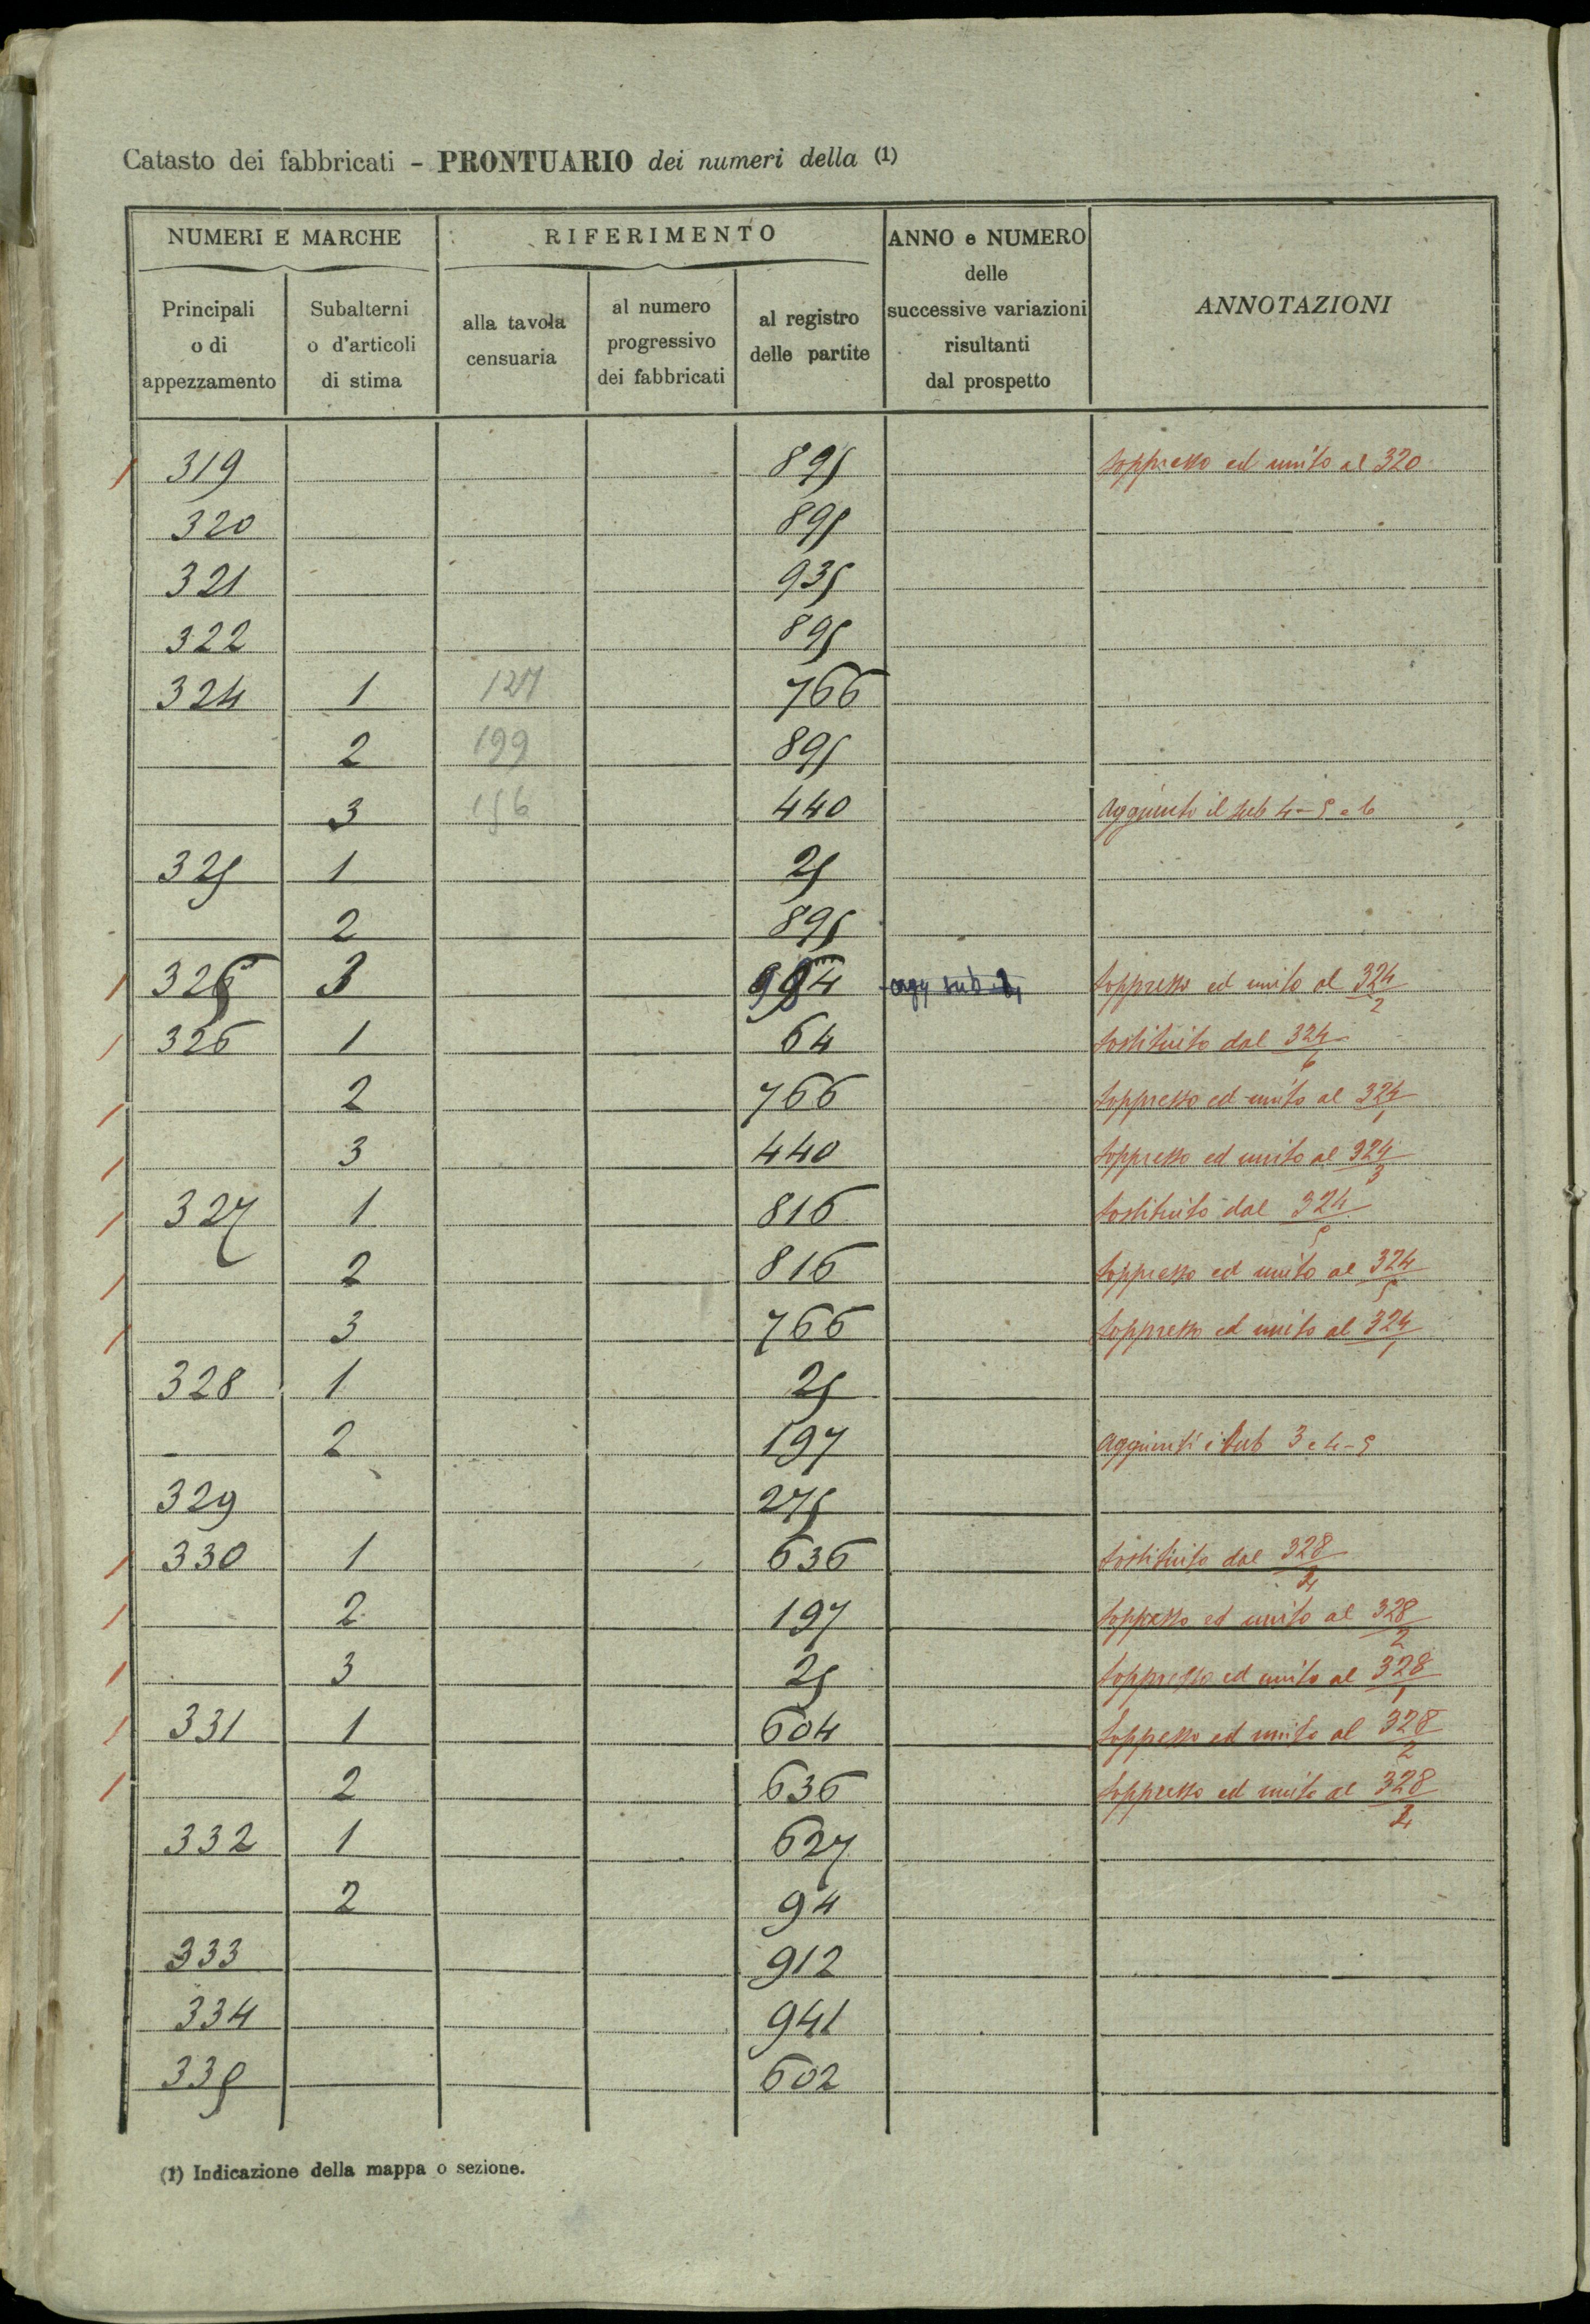 Catasto dei fabbricati - PRONTUARIO dei numeri della (1)
NUMERI E MARCHE
RIFERIMENTO
ANNO e NUMERO
delle
successive variazioni
risultanti
dal prospetto
ANNOTAZIONI
Principali
o di
appezzamento
Subalterni
o d'articoli
di stima
alla tavola
censuaria
al numero
progressivo
dei fabbricati
al registro
delle partite
319 895 soppresso ed unito al 320
320 895
321 935
322 895
324 1 127 766
2 199 895
3 156 440 Aggiunto il sub 4-5 e 6
325 1 25
2 895
325 3 soppresso ed unito al 324/2
326 1 64 sostituito dal 324/6
2 766 soppresso ed unito al 324/1
3 440 soppresso ed unito al 324/3
327 1 816 sostituito dal 324/5
2 816 soppresso ed unito al 324/5
3 766 soppresso ed unito al 324/1
328 1 25
2 197 Aggiunti i sub 3 e 4-5
329 275
330 1 636 sostituito dal 328
2 197 soppresso ed unito al 328/2
3 25 soppresso ed unito al 328/1
331 1 604 soppresso ed unito al 328/2
2 636 soppresso ed unito al 328
332 1 627
2 94
333 912
334 941
335 602
(1) Indicazione della mappa o sezione.